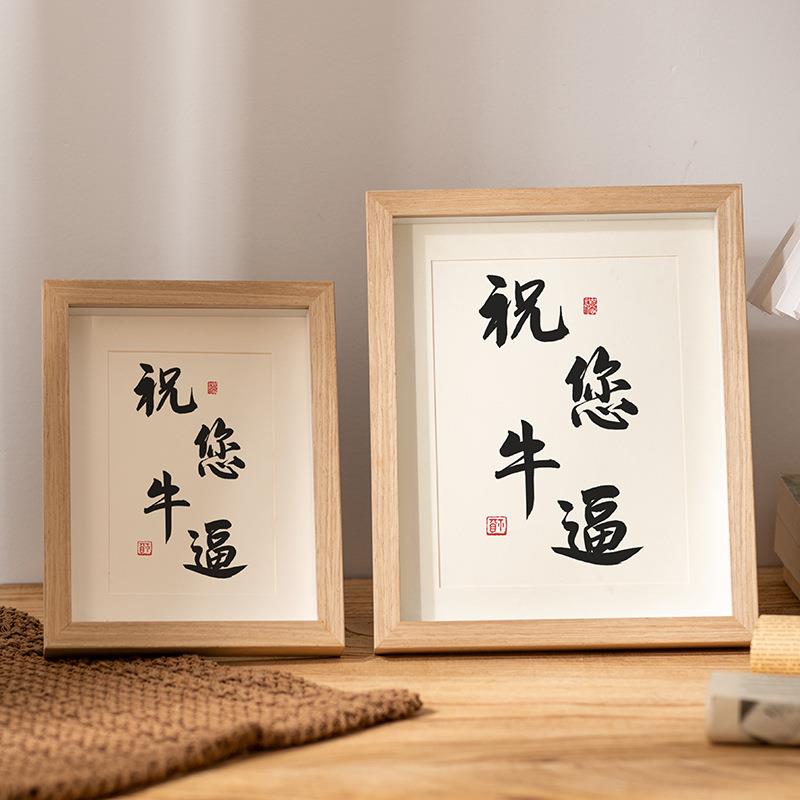 祝
您
牛
逼
祝
您
牛
逼